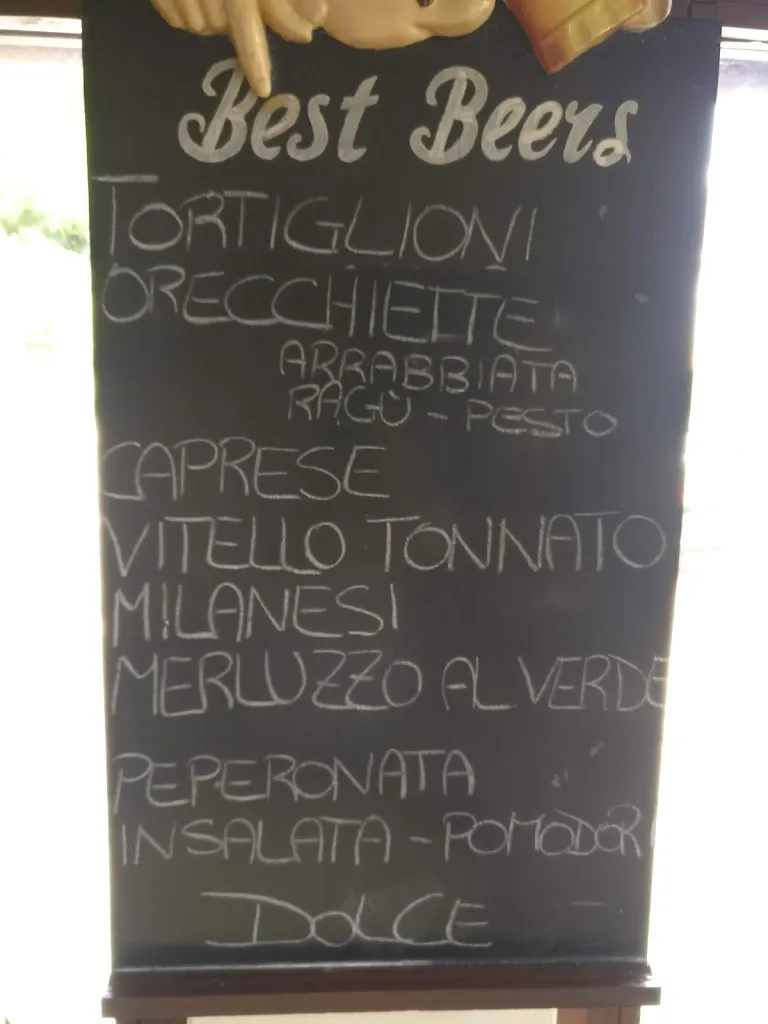 Best Beers
TORTIGLIONI
ORECCHIETTE
ARRABBIATA
RAGÙ - PESTO
CAPRESE
VITELLO TONNATO
MILANESI
MERLUZZO AL VERDE
PEPERONATA
INSALATA - POMODORI
DOLCE